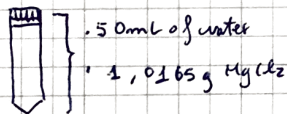 . 50mL of water
. 1,0165g HgCl2